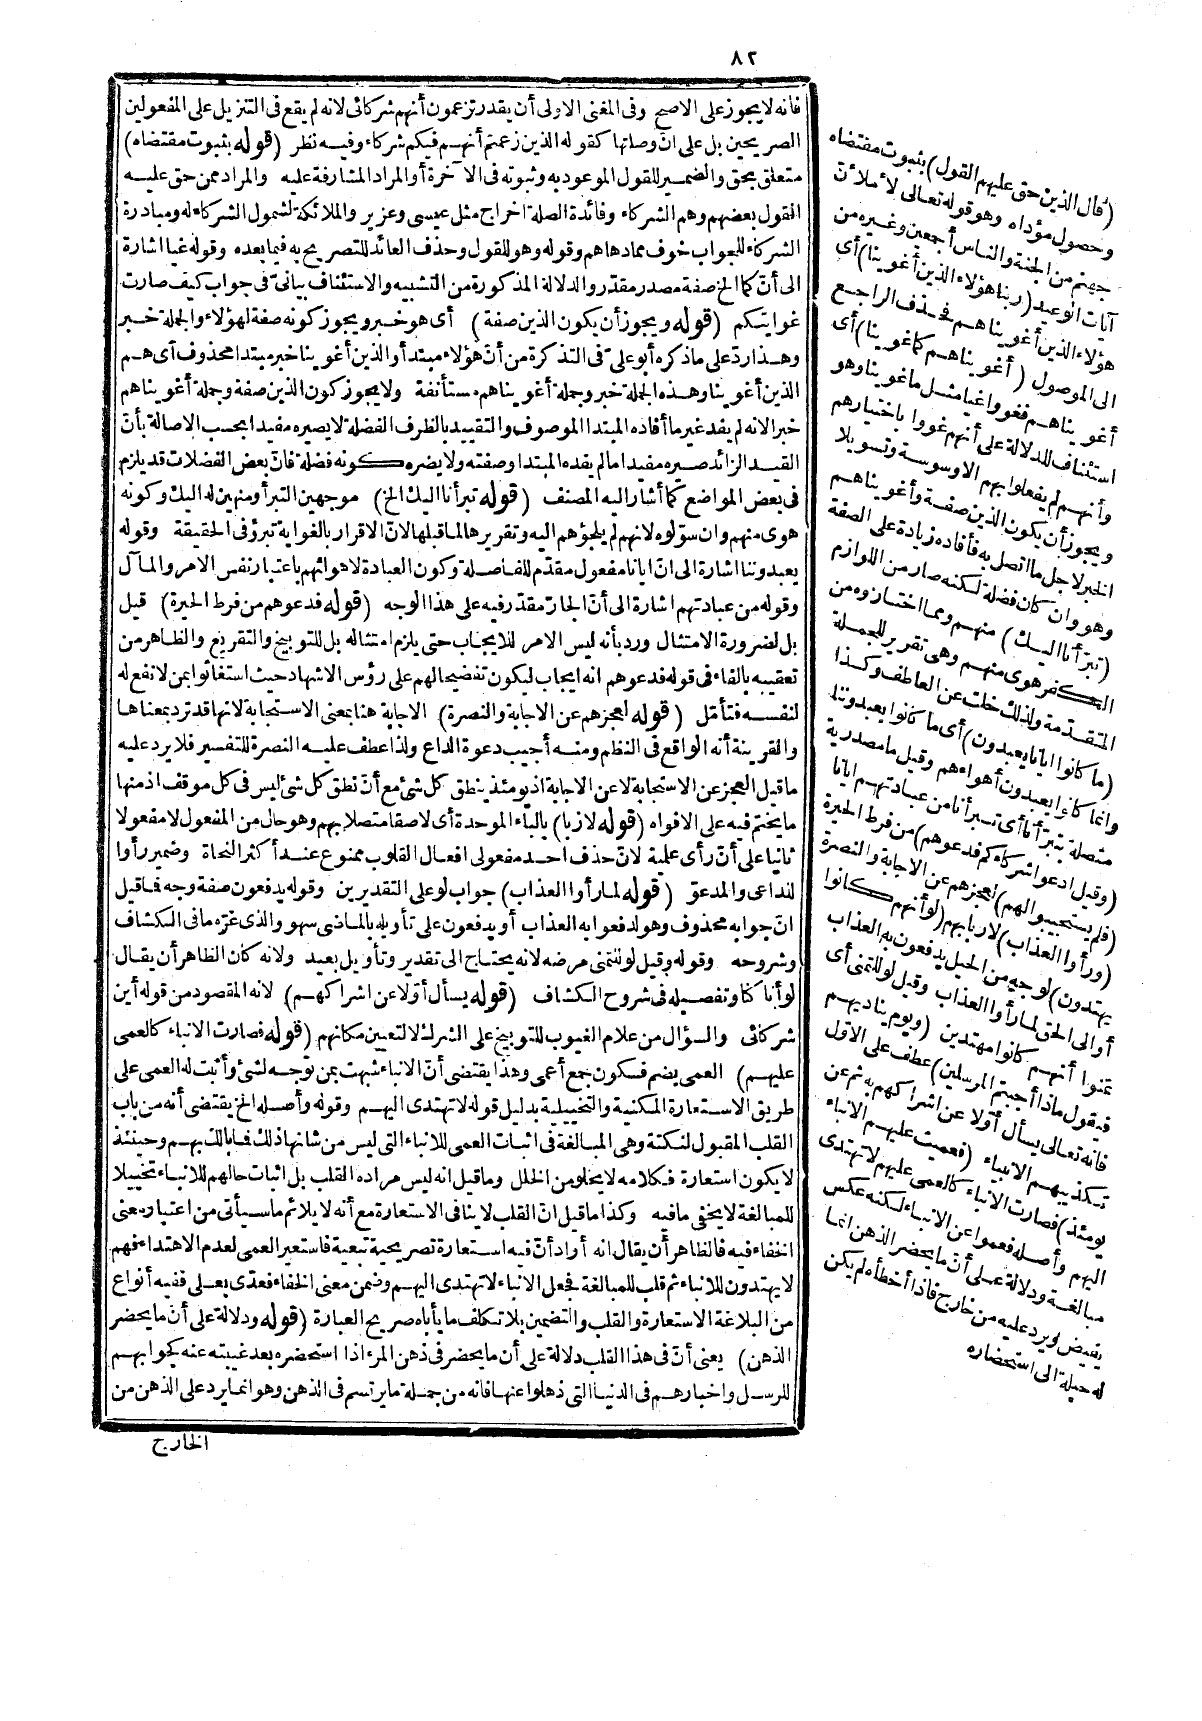 ٨٢
فانه لا يجوز على الاصح وفى المغنى الاولى أن يقدر تزعمون أنهم شركائى لانه لم يقع فى التنزيل على المفعولين
الصريحين بل على انّ وصلتها كقوله الذين زعمتم أنهم فيكم شركاء وفيه نظر (قوله بثبوت مقتضاه)
متعلق بحق والضمير للقول الموعود به وثبوته فى الآخرة أو المراد المشارفة عليه والمراد ممن حق عليه
القول بعضهم وهم الشركاء وفائدة الصلة اخراج مثل عيسى وعزير والملائكة لشمول الشركاء له ومبادرة
الشركاء للجواب خوف مما دهاهم وقوله وهو للقول وحذف العائد للتصريح به فيما بعده وقوله غيا اشارة
الى أنّ كما الخ صفة مصدر مقدّر والدلالة المذكورة من التشبيه والاستئناف بيانىّ فى جواب كيف صارت
غوايتكم (قوله ويجوز أن يكون الذين صفة) أى هو خبر ويجوز كونه صفة لهؤلاء والجملة خبر
وهذا ردّ على ما ذكره أبو علىّ فى التذكرة من أنّ هؤلاء مبتدأ والذين أغوينا خبر مبتدا محذوف أى هم
الذين أغوينا وهذه الجملة خبر وجملة أغويناهم مستأنفة ولا يجوز كون الذين صفة وجملة أغويناهم
خبرا لانه لم يفد غير ما أفاده المبتدا الموصوف والتقييد بالظرف الفضلة لا يصيره مفيدا بحسب الاصالة بأن
القيد الزائد صيره مفيدا ما لم يفده المبتدا وصفته ولا يضره كونه فضلة فانّ بعض الفضلات قد يلزم
فى بعض المواضع كما أشار اليه المصنف (قوله تبرأنا اليك الخ) موجهين التبرأ ومنهين له اليك وكونه
هوى منهم وان سوّلوه لانهم لم يلجؤهم اليه وتقريرها لما قبلها لانّ الاقرار بالغواية تبرؤ فى الحقيقة وقوله
يعبدوننا اشارة الى انّ ايانا مفعول مقدّم للفاصلة وكون العبادة لاهوائهم باعتبار نفس الامر والمآل
وقوله من عبادتهم اشارة الى أنّ الجارّ مقدّر فيه على هذا الوجه (قوله فدعوهم من فرط الحيرة) قيل
بل لضرورة الامتثال وردّ بأنه ليس الامر للايجاب حتى يلزم امتثاله بل للتوبيخ والتقريع والظاهر من
تعقيبه بالفاء فى قوله فدعوهم انه ايجاب ليكون تفضيحا لهم على رؤس الاشهاد حيث استغاثوا بمن لا نفع له
لنفسه فتأمّل (قوله لعجزهم عن الاجابة والنصرة) الاجابة هنا بمعنى الاستجابة لانها قد ترد بمعناها
والقرينة أنه الواقع فى النظم ومنه أجيب دعوة الداع ولذا عطف عليه النصرة للتفسير فلا يرد عليه
ما قيل العجز عن الاستجابة لا عن الاجابة اذ يومئذ ينطق كل شئ مع أنّ نطق كل شئ ليس فى كل موقف اذ منها
ما يختم فيه على الافواه (قوله لازبا) بالباء الموحدة أى لاصقا متصلا بهم وهو حال من المفعول لا مفعولا
ثانيا على أنّ رأى علمية لانّ حذف احد مفعولى افعال القلوب ممنوع عند أكثر النحاة وضمير رأوا
للداعى والمدعوّ (قوله لما رأوا العذاب) جواب لو على التقديرين وقوله يدفعون صفة وجه فما قيل
انّ جوابه محذوف وهو لدفعوا به العذاب أو يدفعون على تأويله بالماضى سهو والذى غرّه ما فى الكشاف
وشروحه وقوله وقيل لو للتمنى مرضه لانه يحتاج الى تقدير وتأويل بعيد ولانه كان الظاهر أن يقال
لو أنا كنا وتفصيله فى شروح الكشاف (قوله يسأل أوّلا عن اشراكهم) لانه المقصود من قوله أين
شركائى والسؤال من علام الغيوب للتوبيخ على الشرك لا لتعيين مكانهم (قوله فصارت الانباء كالعمى
عليهم) العمى بضم فسكون جمع أعمى وهذا يقتضى أنّ الانباء شبهت بمن توجه لشئ وأثبت له العمى على
طريق الاستعارة المكنية والتخييلية بدليل قوله لا تهتدى اليهم وقوله وأصله الخ يقتضى أنه من باب
القلب المقبول لنكتة وهى المبالغة فى اثبات العمى للانباء التى ليس من شانها ذلك فما بالك بهم وحينئذ
لا يكون استعارة فكلامه لا يخلو من الخلل وما قيل انه ليس مراده القلب بل اثبات حالهم للانباء تخييلا
للمبالغة لا يخفى ما فيه وكذا ما قيل انّ القلب لا ينافى الاستعارة مع أنه لا يلائم ما سيأتى من اعتباره معنى
الخفاء فيه فالظاهر أن يقال انه أراد أنّ فيه استعارة تصريحية تبعية فاستعير العمى لعدم الاهتداء فهم
لا يهتدون للانباء ثم قلب للمبالغة فجعل الانباء لا تهتدى اليهم وضمن معنى الخفاء فعدّى بعلى ففيه أنواع
من البلاغة الاستعارة والقلب والتضمين بلا تكلف ما يأباه صريح العبارة (قوله ودلالة على أنّ ما يحضر
الذهن) يعنى أنّ فى هذا القلب دلالة على أن ما يحضر فى ذهن المرء اذا استحضره بعد غيبته عنه كجوابهم
للرسل واخبارهم فى الدنيا التى ذهلوا عنها فانه من جملة ما يرتسم فى الذهن وهو انما يرد على الذهن من
الخارج
(قال الذين حق عليهم القول) بثبوت مقتضاه
وحصول مؤداه وهو قوله تعالى لأملأنّ
جهنم من الجنة والناس أجمعين وغيره من
آيات الوعيد (ربنا هؤلاء الذين أغوينا) أى
هؤلاء الذين أغويناهم فحذف الراجع
الى الموصول (أغويناهم كما غوينا) أى
أغويناهم فغووا غيا مثل ما غوينا وهو
استئناف للدلالة على أنهم غووا باختيارهم
وأنهم لم يفعلوا بهم الا وسوسة وتسويلا
ويجوز أن يكون الذين صفة وأغويناهم
الخبر لاجل ما اتصل به فأفاده زيادة على الصفة
وهو وان كان فضلة لكنه صار من اللوازم
(تبرأنا اليك) منهم ومما اختاروه من
الكفر هوى منهم وهى تقرير للجملة
المتقدمة ولذلك خلت عن العاطف وكذا
(ما كانوا ايانا يعبدون) أى ما كانوا يعبدوننا
وانما كانوا يعبدون أهواءهم وقيل ما مصدرية
متصلة بتبرأنا أى تبرأنا من عبادتهم ايانا
(وقيل ادعوا شركاءكم فدعوهم) من فرط الحيرة
(فلم يستجيبوا لهم) لعجزهم عن الاجابة والنصرة
(ورأوا العذاب) لازبا بهم (لو أنهم كانوا
يهتدون) لوجه من الحيل يدفعون به العذاب
أو الى الحق لما رأوا العذاب وقيل لو للتمنى أى
تمنوا أنهم كانوا مهتدين (ويوم يناديهم
فيقول ماذا أجبتم المرسلين) عطف على الاوّل
فانه تعالى يسأل أوّلا عن اشراكهم به ثم عن
تكذيبهم الانبياء (فعميت عليهم الانباء
يومئذ) فصارت الانباء كالعمى عليهم لا تهتدى
اليهم وأصله فعموا عن الانباء لكنه عكس
مبالغة ودلالة على أن ما يحضر الذهن انما
يفيض ويرد عليه من خارج فاذا أخطأه لم يكن
له حيلة الى استحضاره